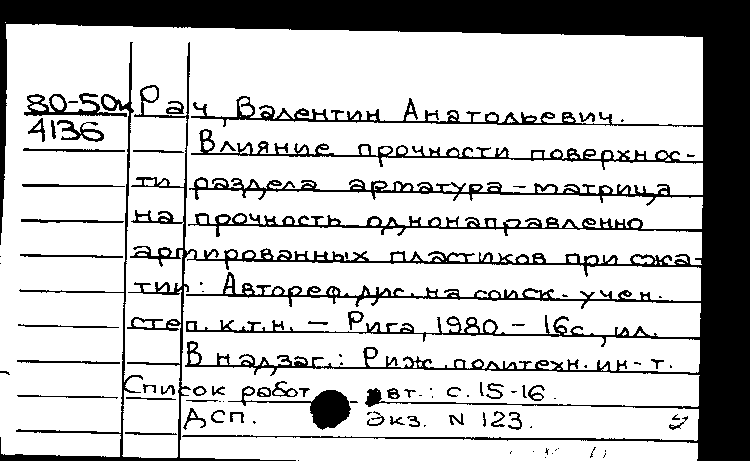 80-50к Рач, Валентин Анатольевич.
4136
Влияние прочности поверхнос-
ти раздела арматура-матрица
на прочность однонаправленно
армированных пластиков при сжа-
тии: Автореф. дис. на соиск. учен.
степ. к.т.н. – Рига, 1980. – 16с., ил.
В надзаг.: Риж. политехн. ин-т.
Список работ авт.: с. 15-16.
ДСП. Экз. N 123.